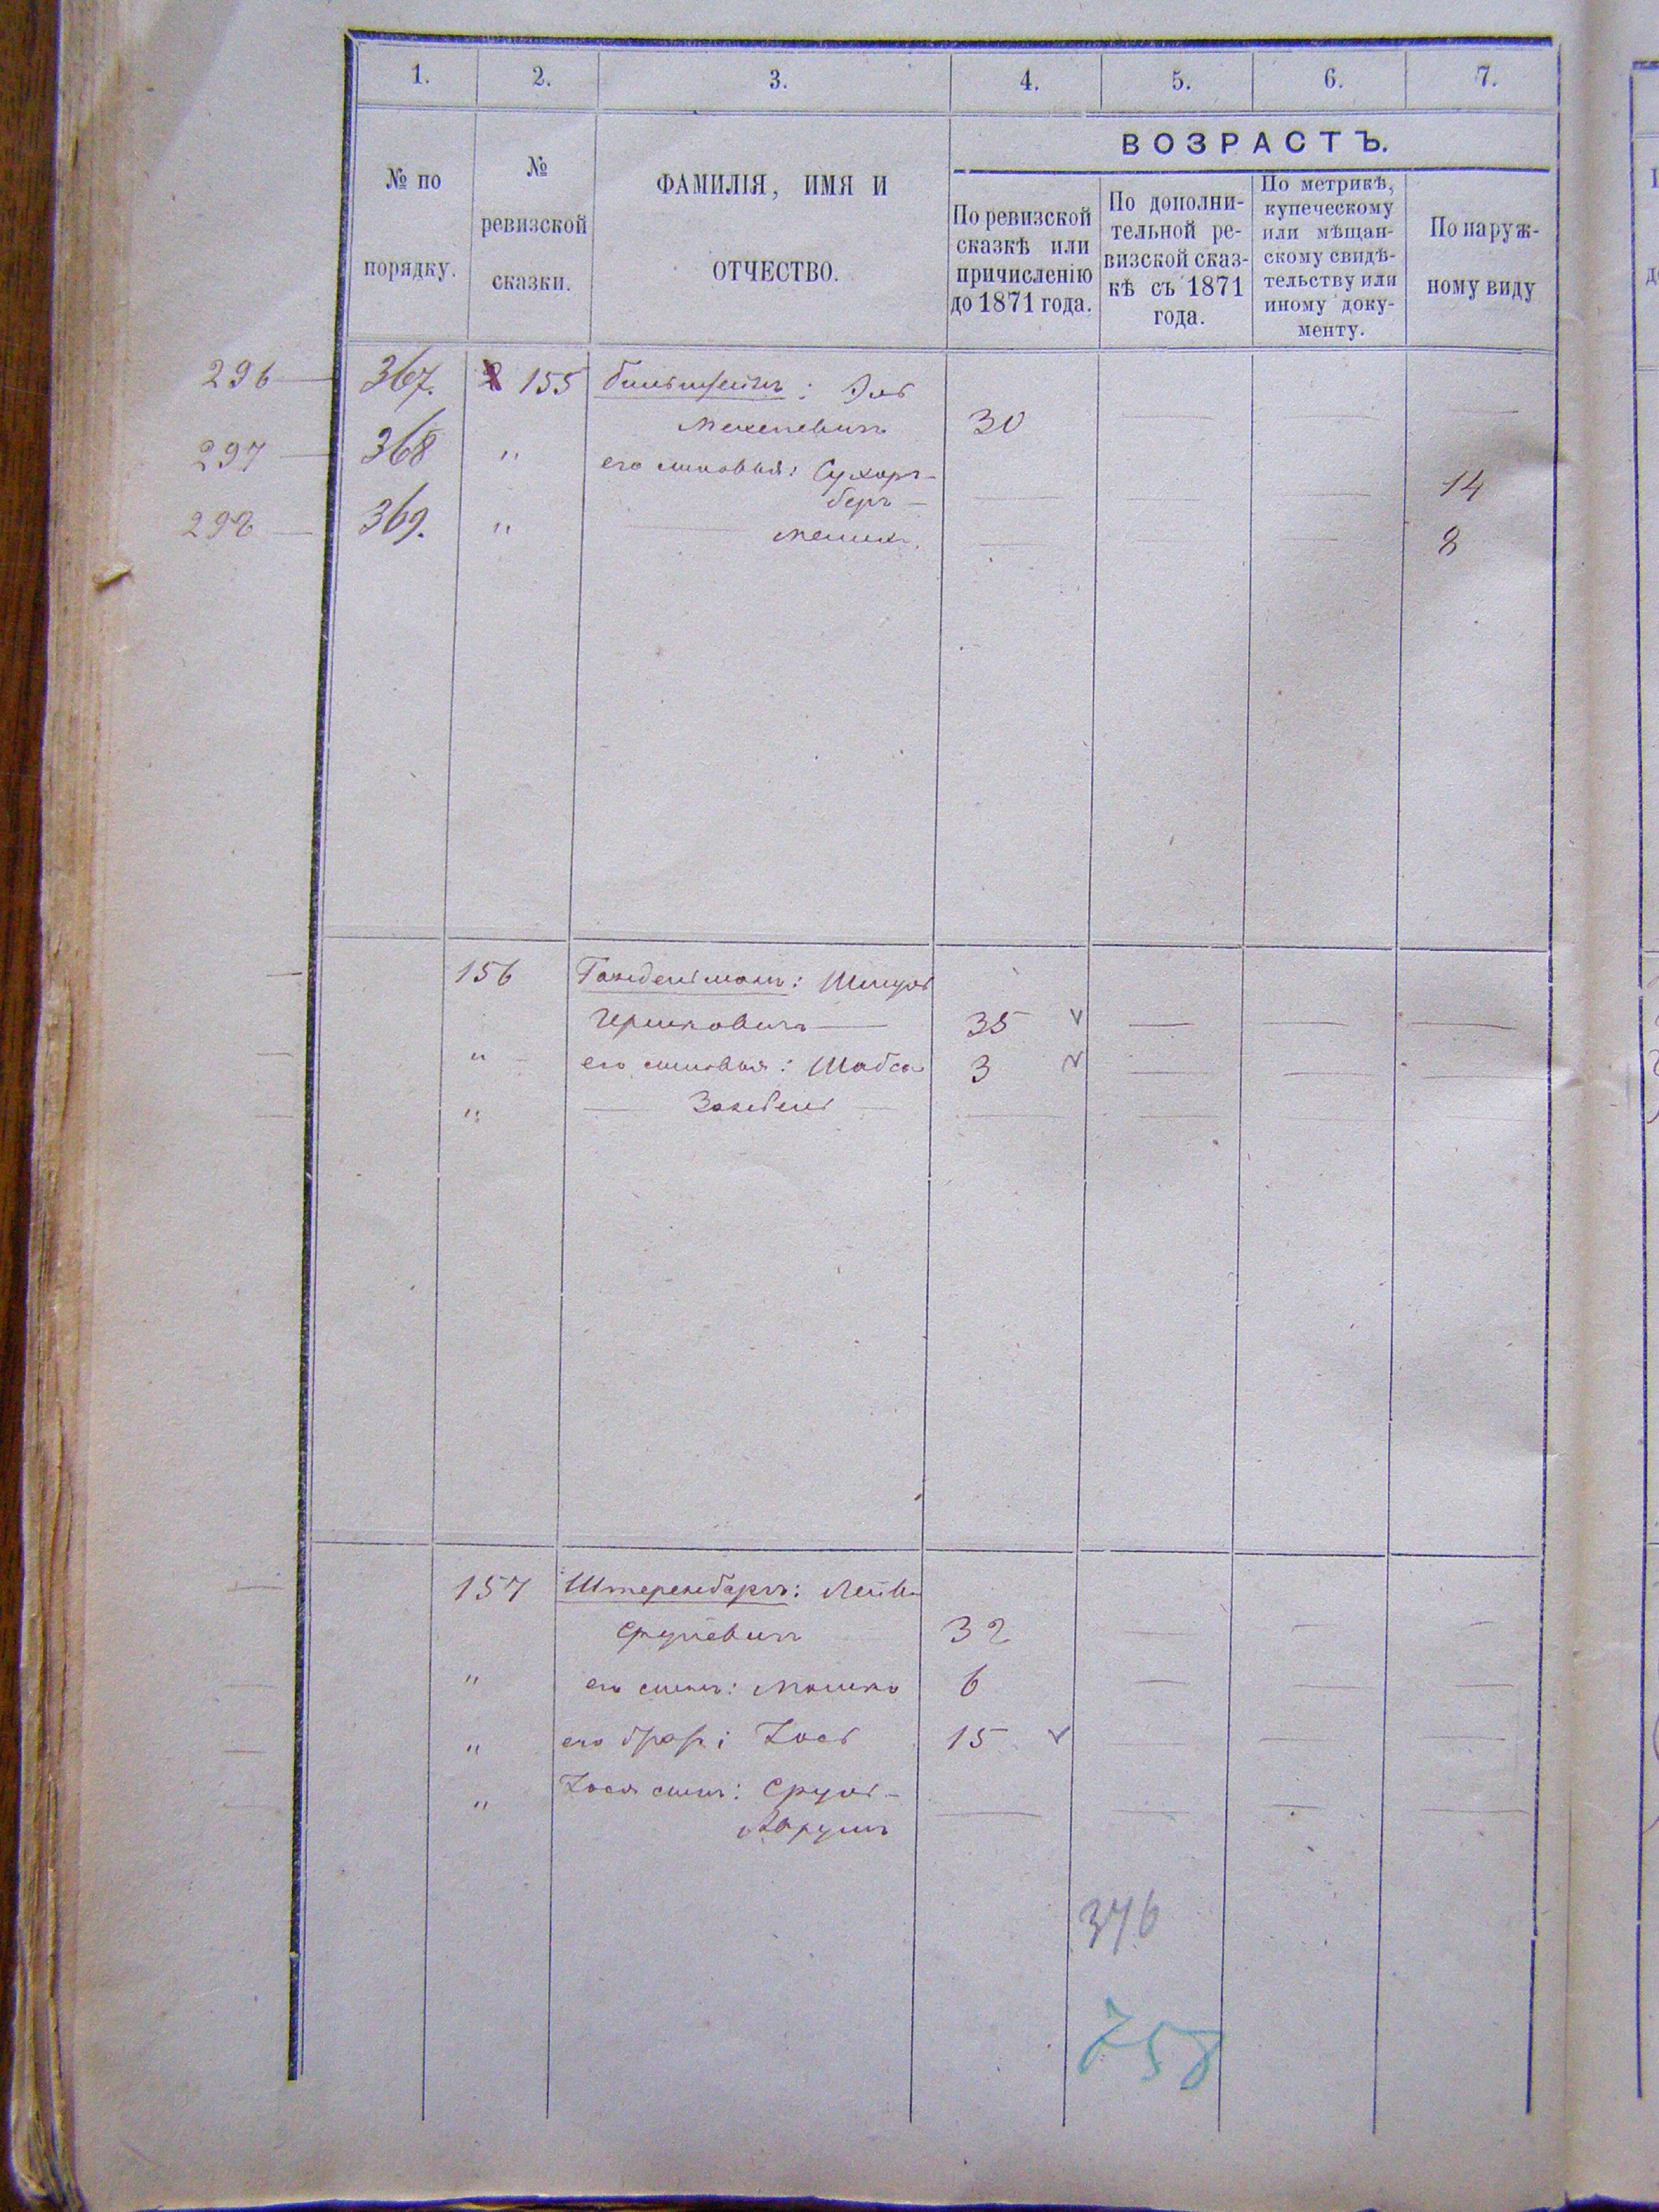 1. 2. 3. 4. 5. 6. 7.
№ по порядку.
№ ревизской сказки.
ФАМИЛІЯ, ИМЯ И ОТЧЕСТВО.
ВОЗРАСТЪ.
По ревизской
сказкѣ или
причисленію
до 1871 года.
По дополни-
тельной ре-
визской сказ-
кѣ съ 1871
года.
По метрикѣ,
купеческому
или мѣщан-
скому свидѣ-
тельству или
иному доку-
менту.
По наруж-
ному виду
296 — 367. 155 Бильштейнъ: Эль
Мехелевичъ 30
297 — 368 " его сыновья: Сухоръ-
беръ — 14
298 — 369. " 8
156 Шмуль
Гершковичъ — 35
" его сыновья: Шабса 3
" — Зейдель —
157 Штеренбаръ: Лейба
Срулевичъ 32
" его сынъ: Мошко 6
" его братъ: Іось 15
" Іося сынъ: Сруль-
376
758